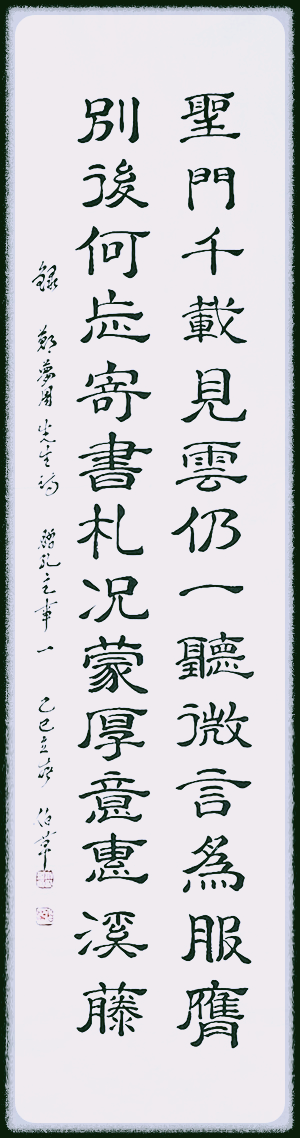 聖門千載見雲仍一聽微言為服膺
別後何忘寄書札况蒙厚意惠溪藤
錄 鄭夢周先生詩 贈孔之事一 乙巳立 伯草